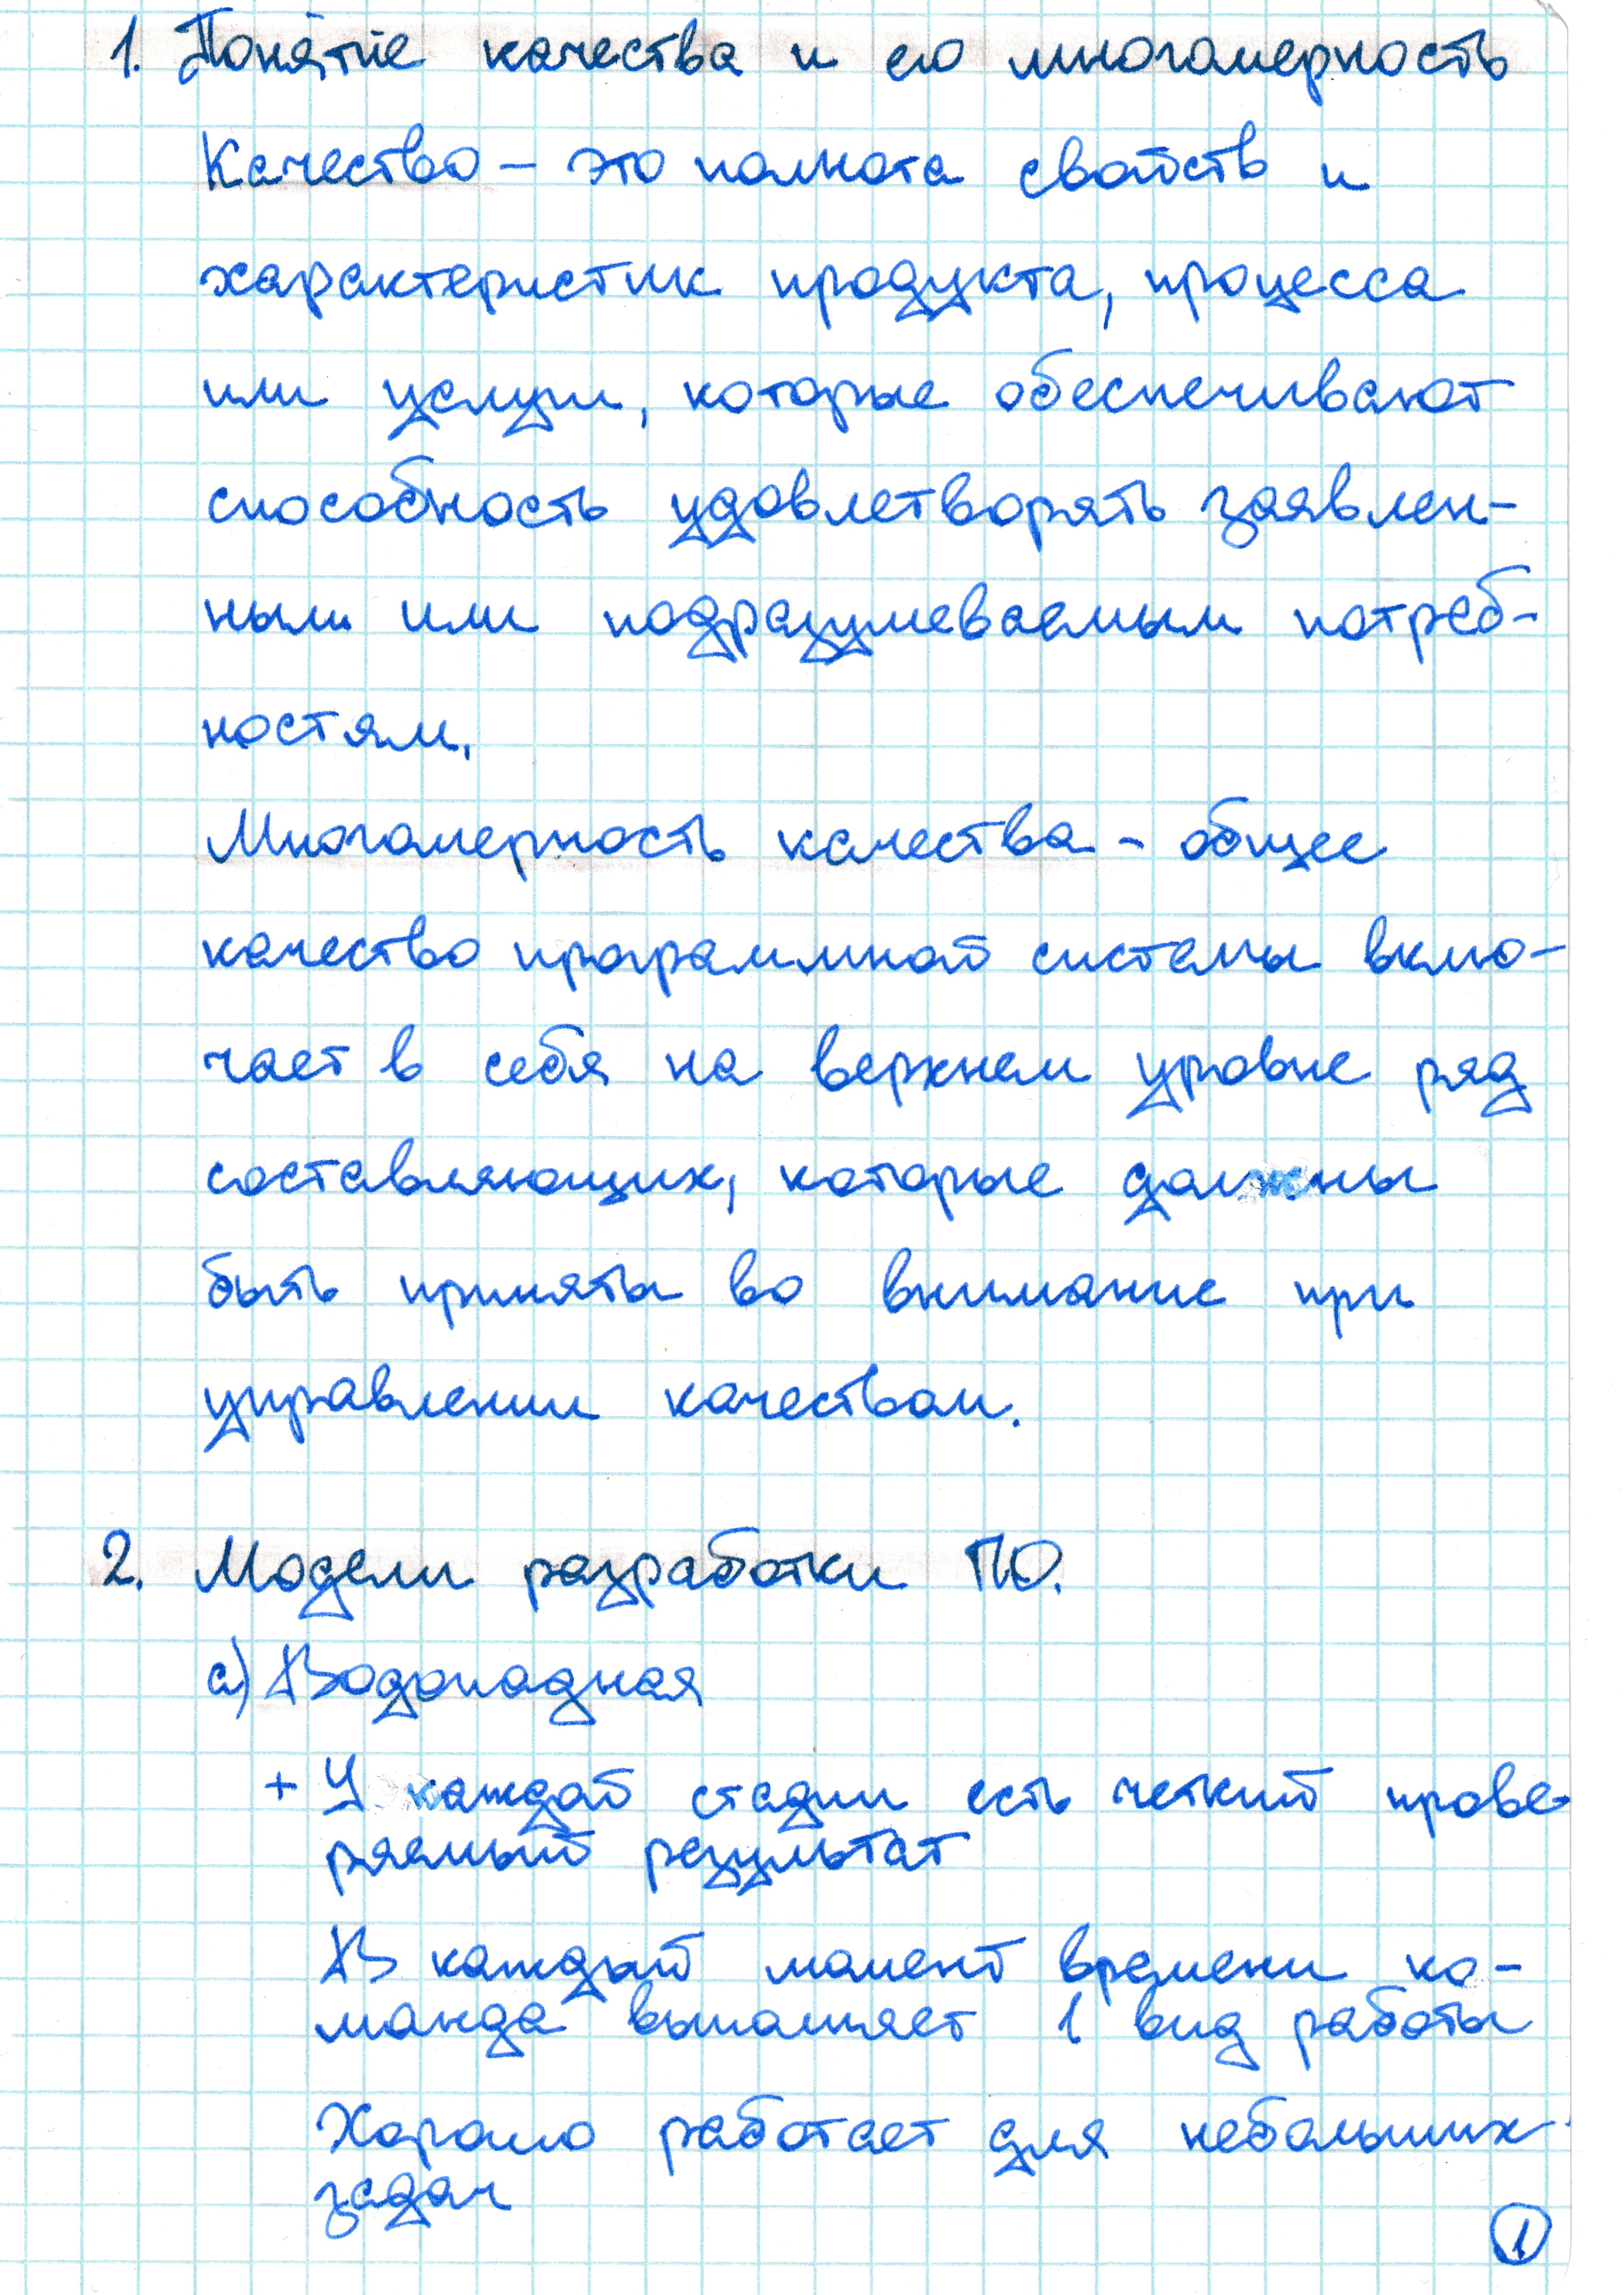 1. Понятие качества и его многомерность
Качество – это полнота свойств и
характеристик продукта, процесса
или услуги, которые обеспечивают
способность удовлетворять заявлен-
ным или подразумеваемым потреб-
ностям.
Многомерность качества - общее
качество программной системы вклю-
чает в себя на верхнем уровне ряд
составляющих, которые должны
быть приняты во внимание при
управлении качеством.
2. Модели разработки ПО.
а) Водопадная
+ У каждой стадии есть четкий прове-
ряемый результат
В каждый момент времени ко-
манда выполняет 1 вид работы
Хорошо работает для небольших
задач
1